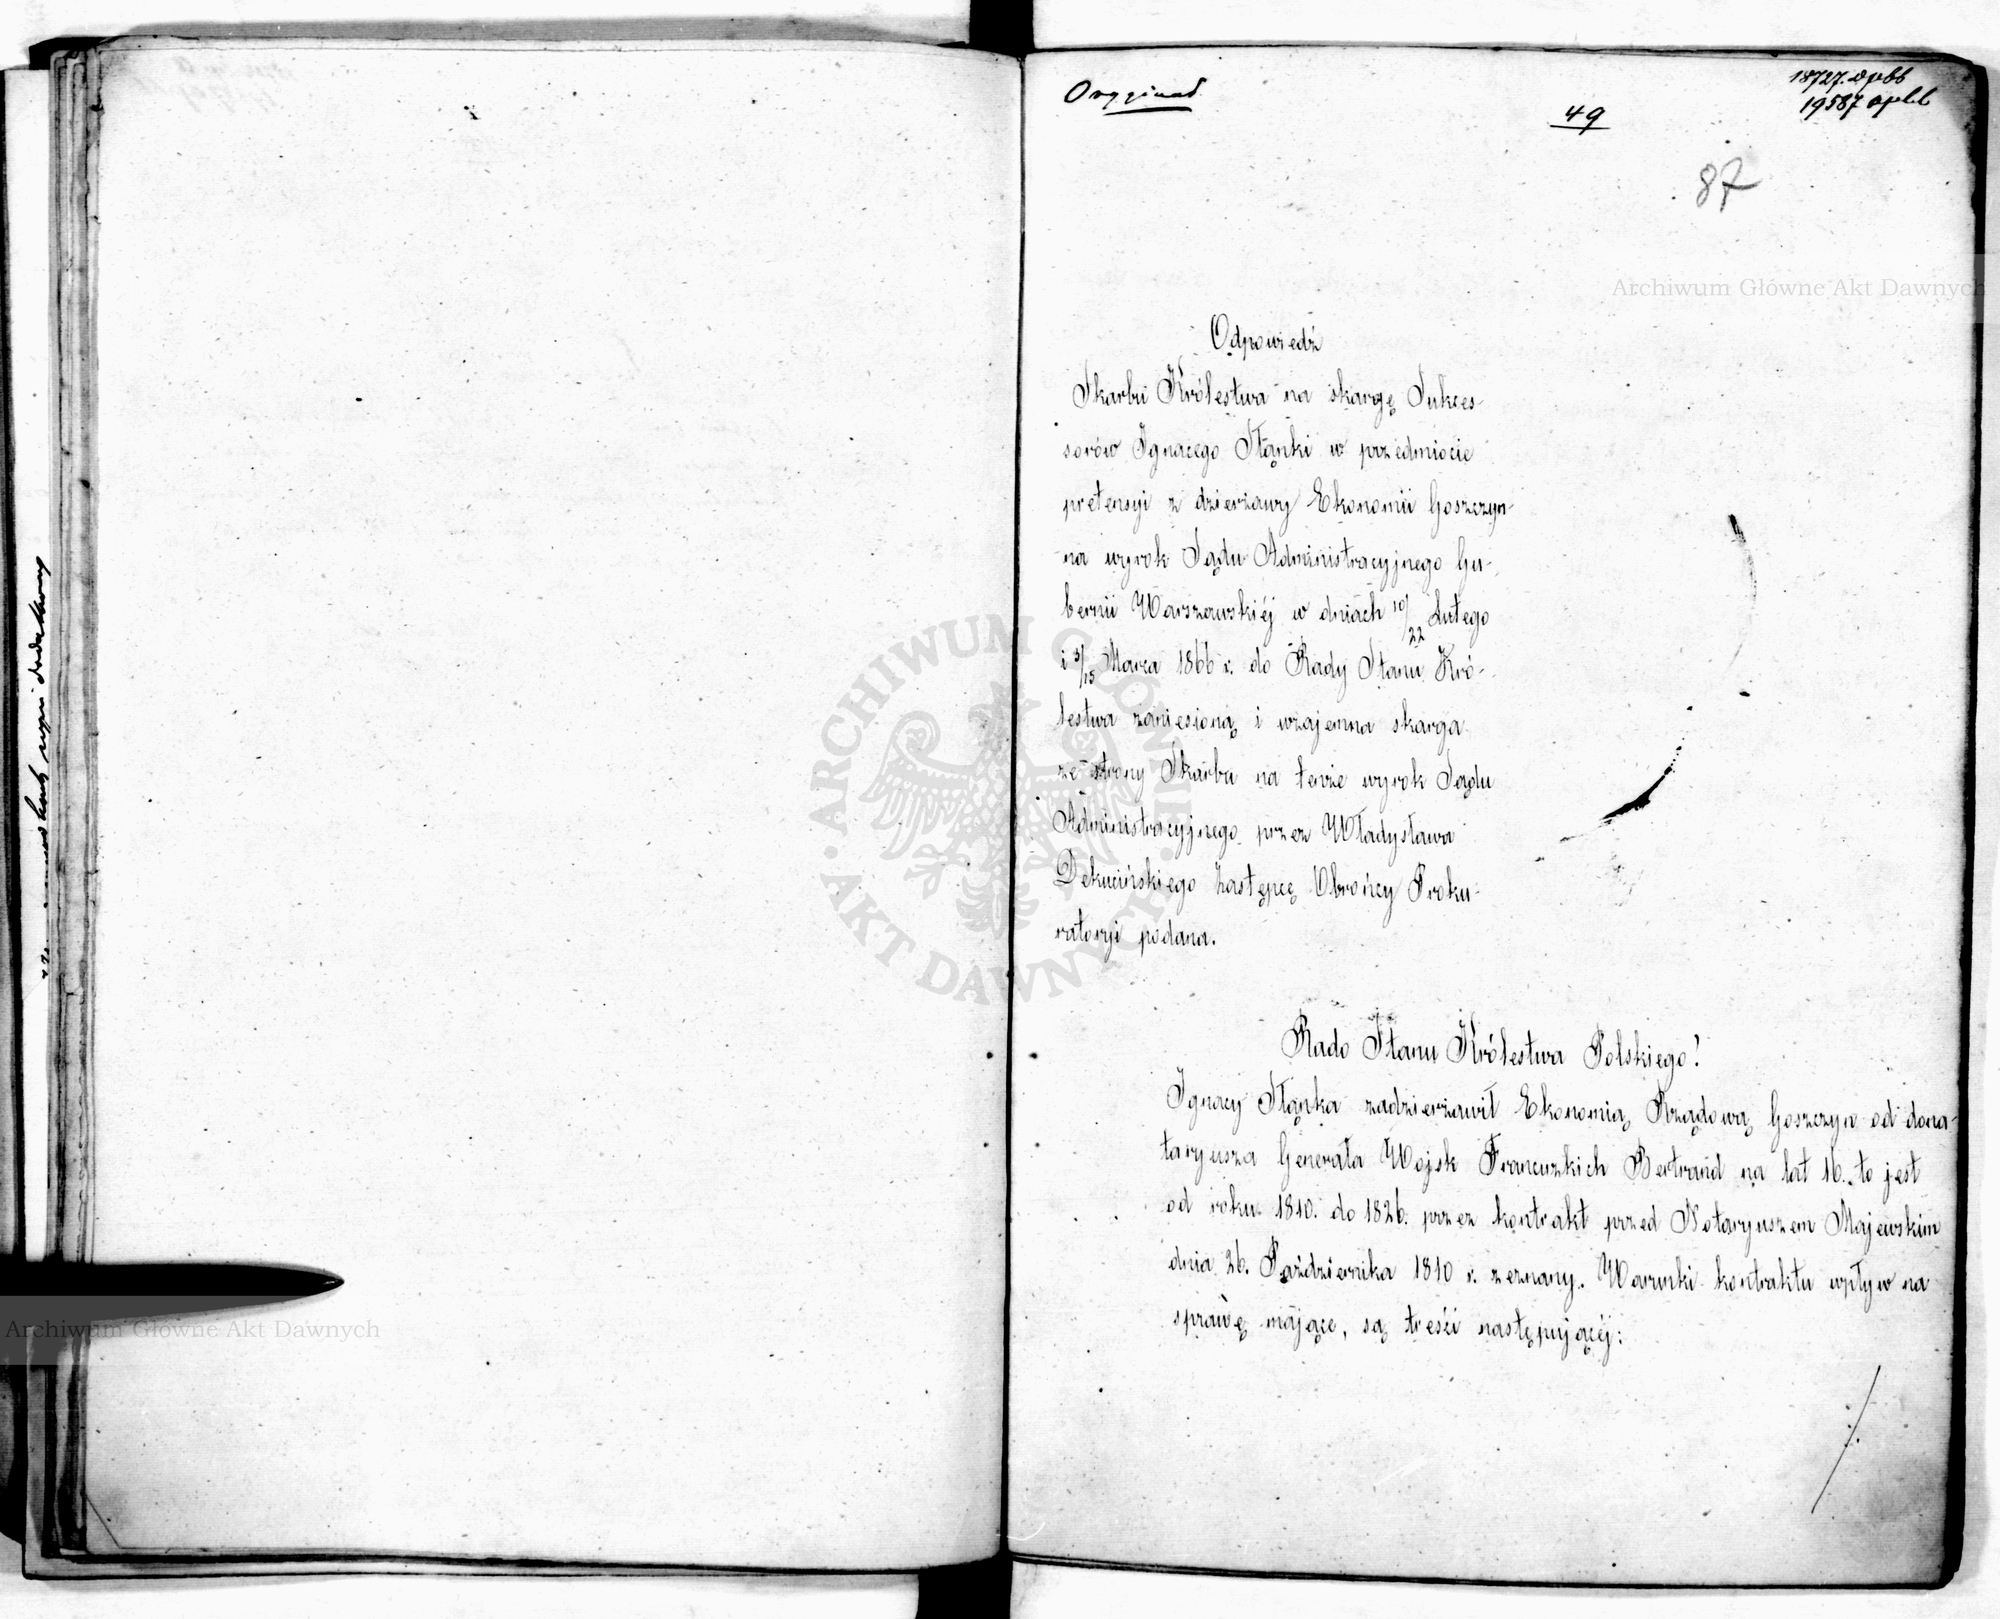 Oryginał.
49
87
Odpowiedź
Skarbu Królestwa na skargę Sukces-
sorów Ignacego Stąnki w przedmiocie
pretensyi z dzierżawy Ekonomii Goszczyn
na wyrok Sądu Administracyjnego Gu-
bernii Warszawskiéj w dniach 10/22 Lutego
i 3/15 Marca 1866 r. do Rady Stanu Kró-
lestwa zaniesioną i wzajemna skarga
ze strony Skarbu na tenże wyrok Sądu
Administracyjnego przez Władysława
Dekucińskiego Zastępcę Obrońcy Proku-
ratoryi podana.
Rado Stanu Królestwa Polskiego!
Ignacy Stąnka zadzierżawił Ekonomią Rządową Goszczyn od dona-
taryusza Generała Wojsk Francuzkich Bertrand na lat 16. to jest
od roku 1810. do 1826. przez kontrakt przed Notaryuszem Majewskim
dnia 26. Października 1810 r. zeznany. Warunki kontraktu wpływ na
sprawę mające, są treści następującéj:
Archiwum Główne Akt Dawnych
Archiwum Główne Akt Dawnych
ARCHIWUM GŁÓWNE AKT DAWNYCH